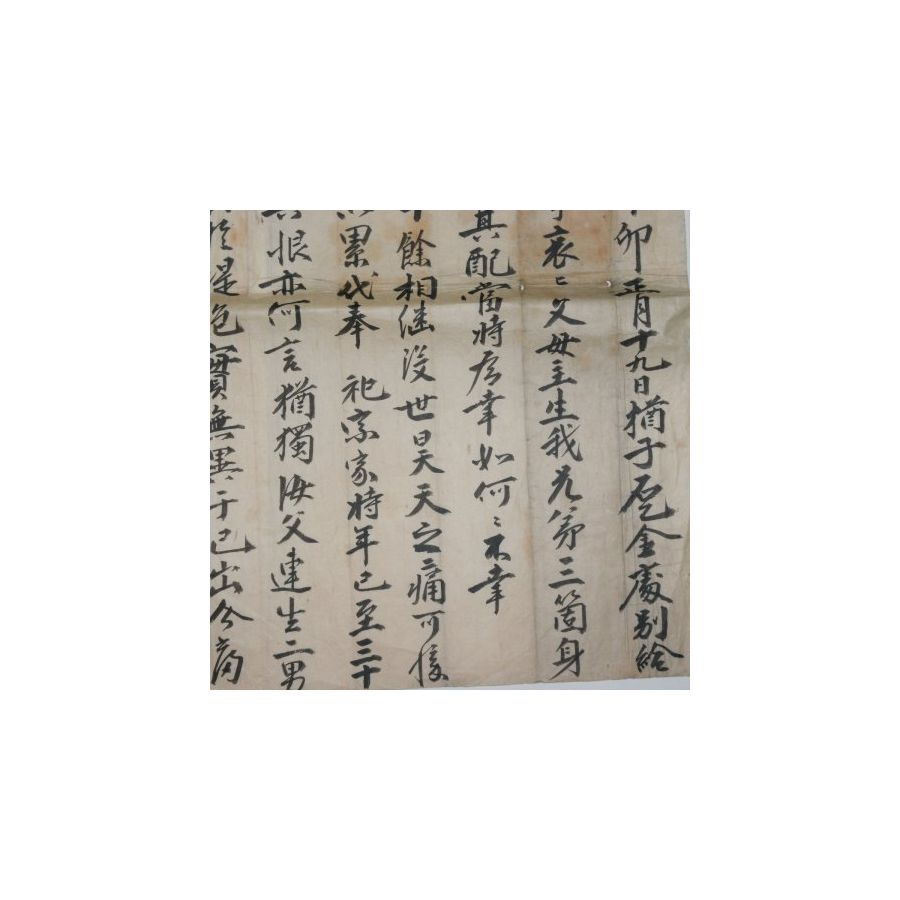 卯正月十九日猶子 金處別給
哀〻父母主生我兄弟三箇身
其配當時 幸如何〻不幸
餘相継沒世昊天之痛可
累代奉 祀宗家時年已至三十
恨亦何言猶獨汝父連生二男
是色實無異于已出今